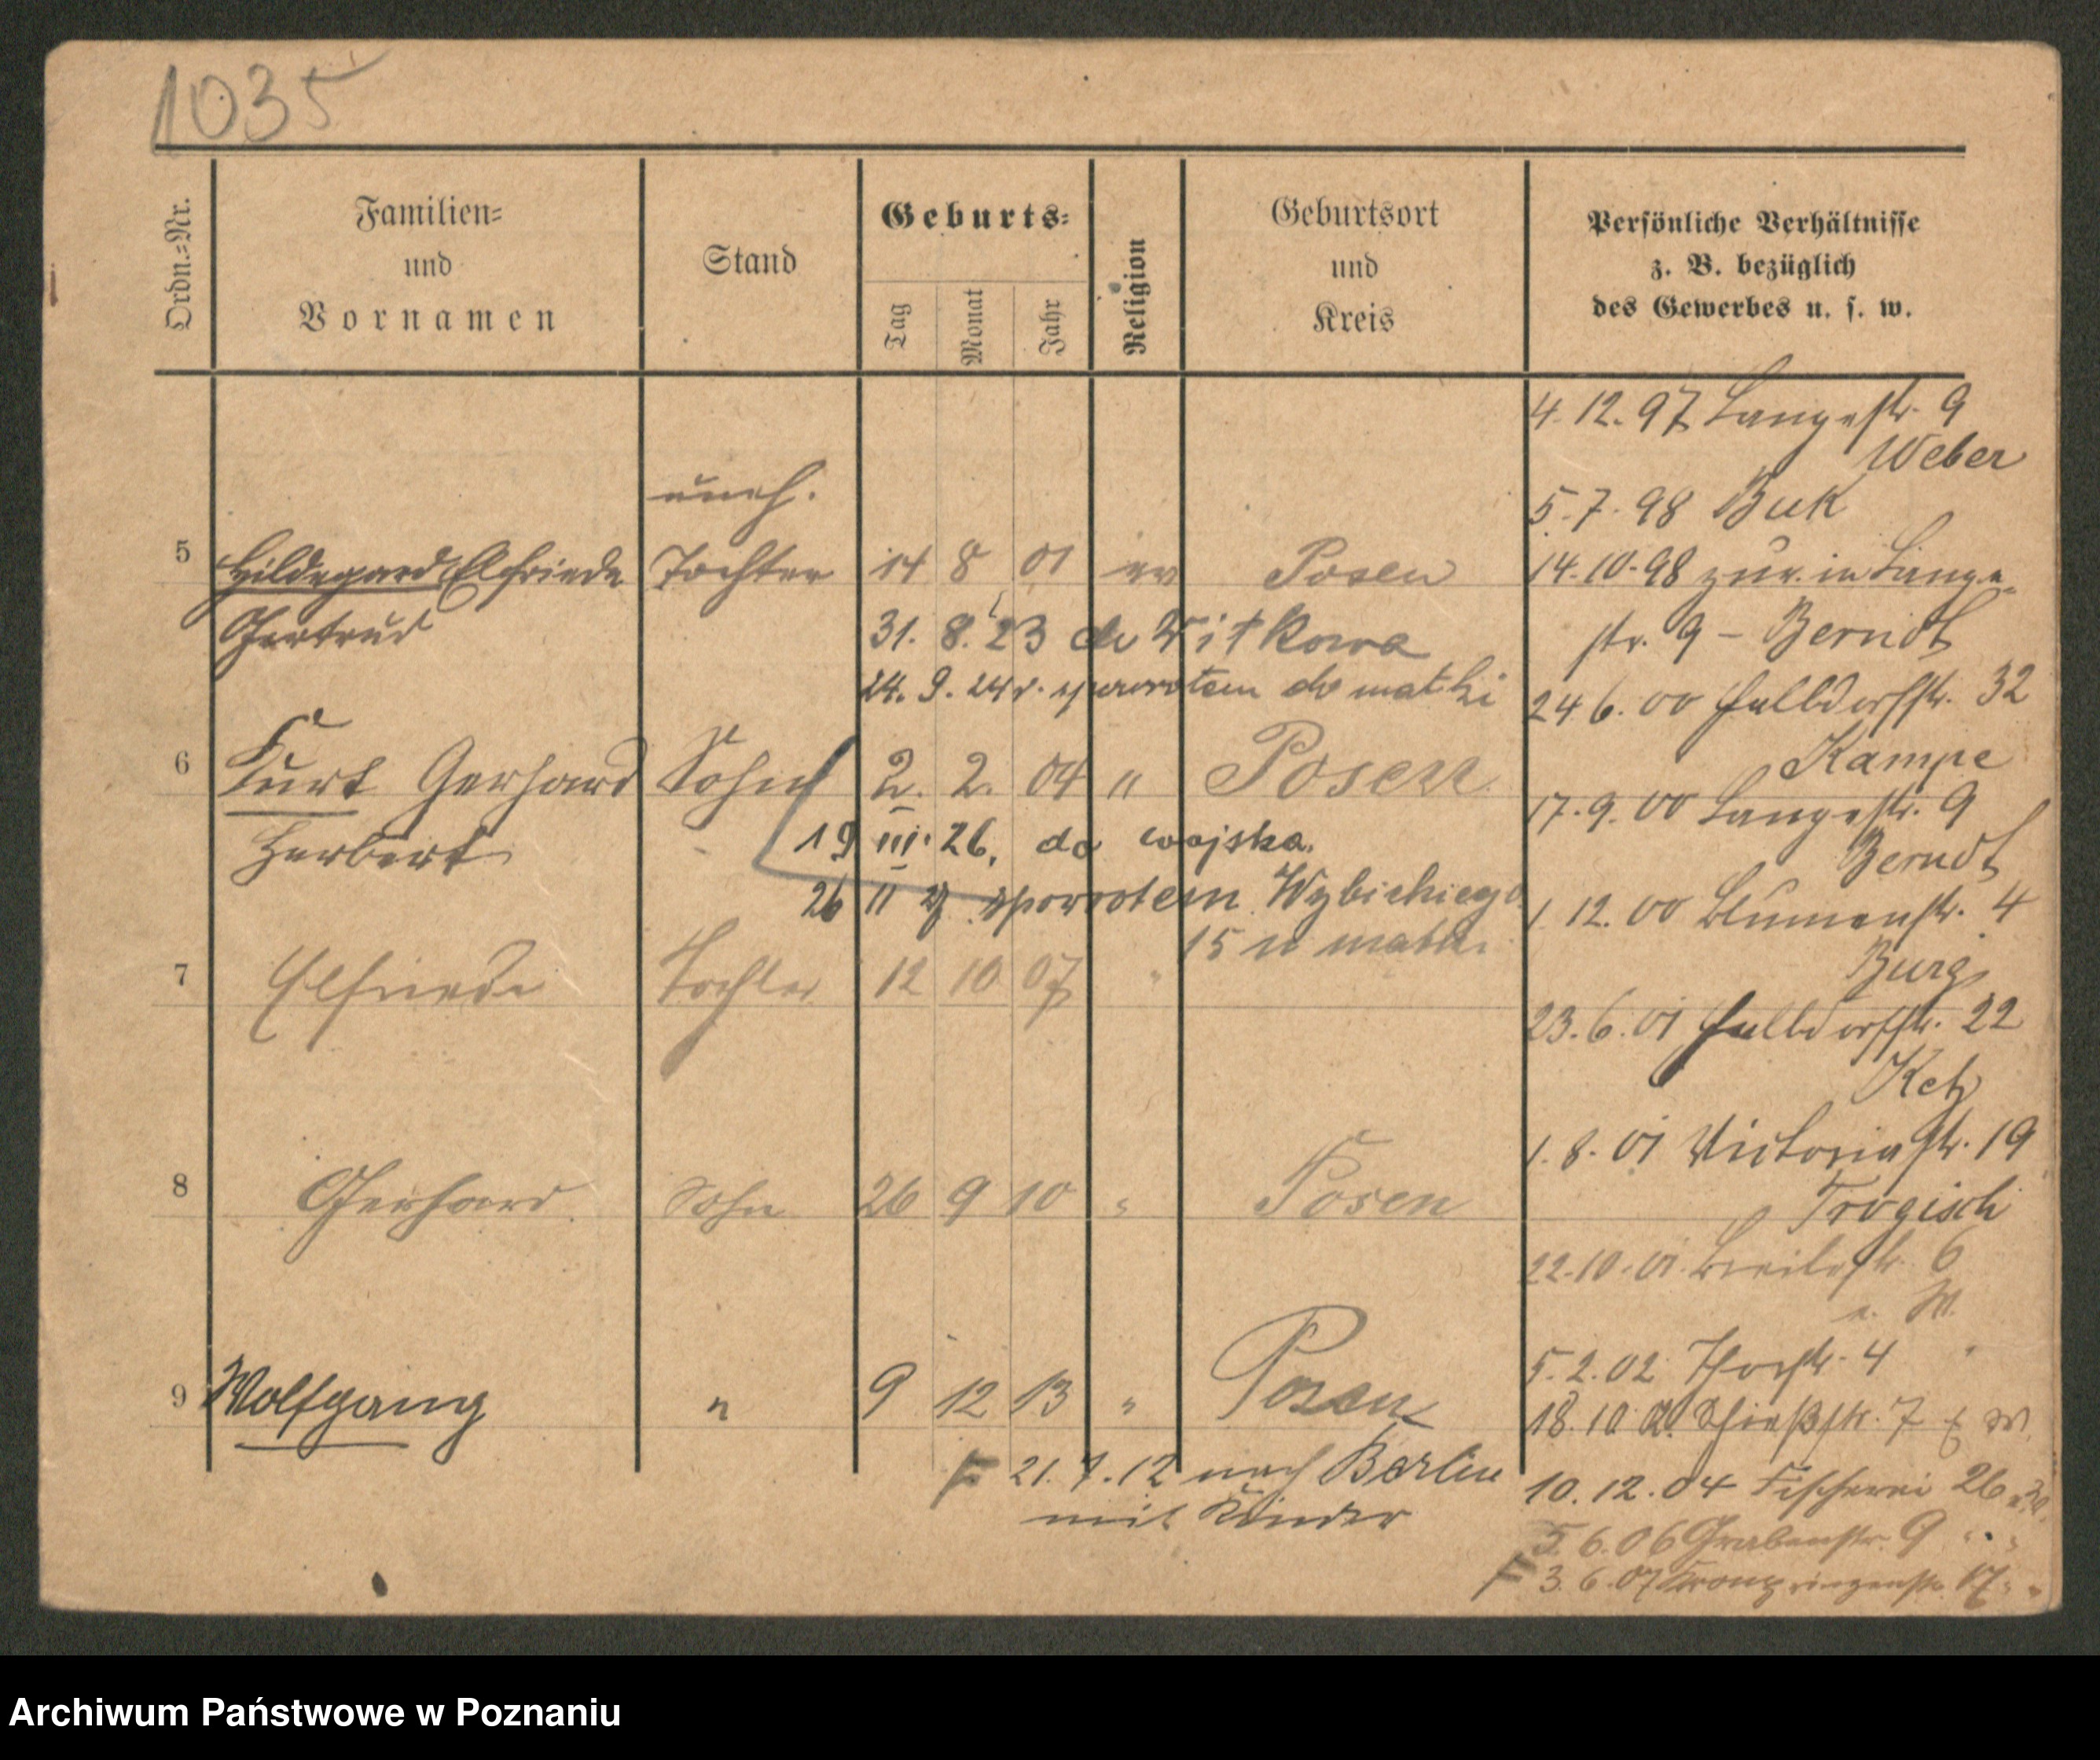 1035
Ordn.-Nr.
Familien-
und
Vornamen
Stand
Geburts-
Tag
Monat
Jahr
Religion
Geburtsort
und
Kreis
Persönliche Verhältnisse
z. B. bezüglich
des Gewerbes u. s. w.
uneh.
5 Hildegard Elfriede Tochter 14 8 01 ev Posen
Gertrud
31. 8. 23 do Witkowa
24. 9. 24 r. zpowrotem do matki
6 Kurt Gerhard Sohn 2. 2. 04 " Posen
Herbert
19 III. 26. do wojska.
26 II zpowrotem Wybickiego
15 u matki
7 Elfriede Tochter 12 10 07 "
8 Gerhard Sohn 26 9 10 " Posen
9 Wolfgang " 9 12 13 " Posen
F 21. 7. 12 nach Berlin
mit Kinder
4. 12. 97 Langestr. 9
Weber
5. 7. 98 Buk
14. 10. 98 zur. in Lange-
str. 9 – Berndt
24 6. 00 Halldorfstr. 32
Kampe
17. 9. 00 Langestr. 9
Berndt
1. 12. 00 Blumenstr. 4
Burg
23. 6. 01 Halldorfstr. 22
Ketz
1. 8. 01 Victoriastr. 19
Trogisch
22. 10. 01 Breitestr. 6
e. W.
5. 2. 02 Thorstr. 4 "
18. 10 Schießstr. 7 e W.
10. 12. 04 Fischerei 26 e W.
5. 6. 06 Grabenstr. 9 " "
F 3. 6. 07 Kronprinzenstr. 17 " "
Archiwum Państwowe w Poznaniu